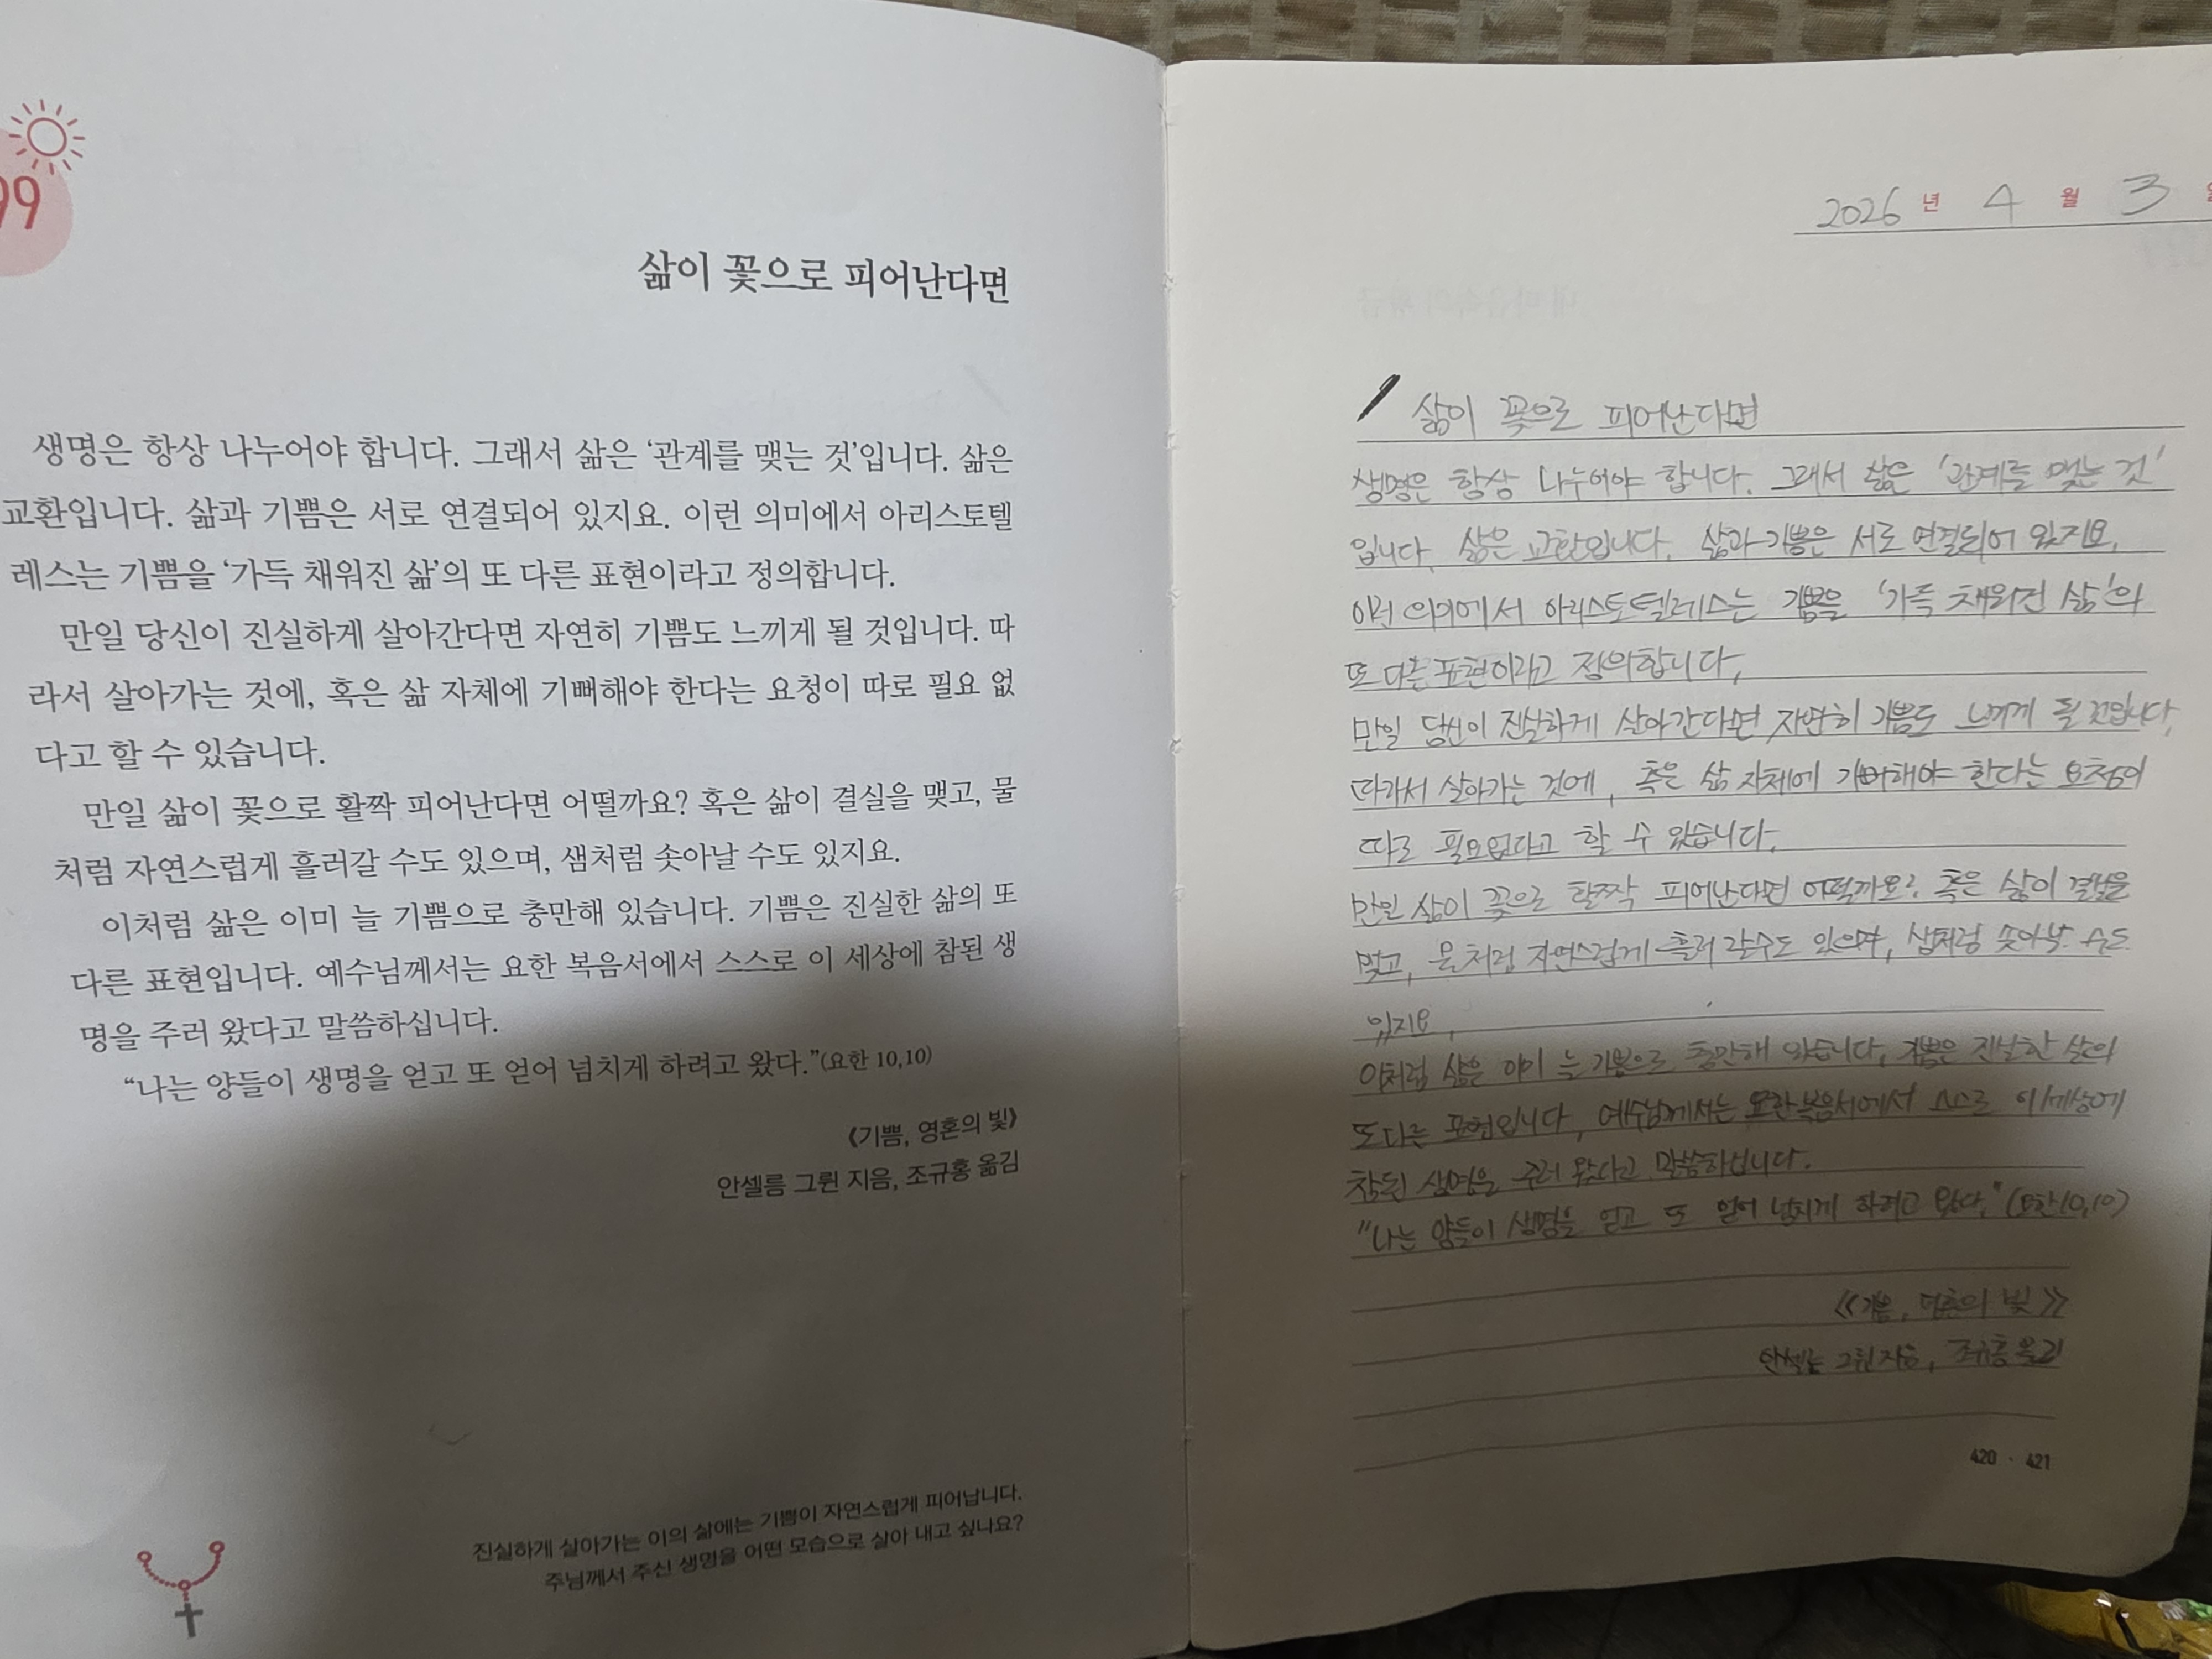 99
삶이 꽃으로 피어난다면
생명은 항상 나누어야 합니다. 그래서 삶은 ‘관계를 맺는 것’입니다. 삶은
교환입니다. 삶과 기쁨은 서로 연결되어 있지요. 이런 의미에서 아리스토텔
레스는 기쁨을 ‘가득 채워진 삶’의 또 다른 표현이라고 정의합니다.
만일 당신이 진실하게 살아간다면 자연히 기쁨도 느끼게 될 것입니다. 따
라서 살아가는 것에, 혹은 삶 자체에 기뻐해야 한다는 요청이 따로 필요 없
다고 할 수 있습니다.
만일 삶이 꽃으로 활짝 피어난다면 어떨까요? 혹은 삶이 결실을 맺고, 물
처럼 자연스럽게 흘러갈 수도 있으며, 샘처럼 솟아날 수도 있지요.
이처럼 삶은 이미 늘 기쁨으로 충만해 있습니다. 기쁨은 진실한 삶의 또
다른 표현입니다. 예수님께서는 요한 복음서에서 스스로 이 세상에 참된 생
명을 주러 왔다고 말씀하십니다.
“나는 양들이 생명을 얻고 또 얻어 넘치게 하려고 왔다.”(요한 10,10)
《기쁨, 영혼의 빛》
안셀름 그륀 지음, 조규홍 옮김
진실하게 살아가는 이의 삶에는 기쁨이 자연스럽게 피어납니다.
주님께서 주신 생명을 어떤 모습으로 살아 내고 싶나요?
2026 년 4 월 3
삶이 꽃으로 피어난다면
생명은 항상 나누어야 합니다. 그래서 삶은 ‘관계를 맺는 것’
입니다. 삶은 교환입니다. 삶과 기쁨은 서로 연결되어 있지요.
이런 의미에서 아리스토텔레스는 기쁨을 ‘가득 채워진 삶’의
또 다른 표현이라고 정의합니다.
만일 당신이 진실하게 살아간다면 자연히 기쁨도 느끼게 될 것입니다.
따라서 살아가는 것에, 혹은 삶 자체에 기뻐해야 한다는 요청이
따로 필요없다고 할 수 있습니다.
만일 삶이 꽃으로 활짝 피어난다면 어떨까요? 혹은 삶이 결실을
맺고, 물처럼 자연스럽게 흘러 갈수도 있으며, 샘처럼 솟아날 수도
있지요.
이처럼 삶은 이미 늘 기쁨으로 충만해 있습니다. 기쁨은 진실한 삶의
또다른 표현입니다. 예수님께서는 요한복음서에서 스스로 이 세상에
참된 생명을 주러 왔다고 말씀하십니다.
"나는 양들이 생명을 얻고 또 얻어 넘치게 하려고 왔다." (요한10,10)
《기쁨, 영혼의 빛》
안셀름 그륀 지음, 조규홍 옮김
420 · 421